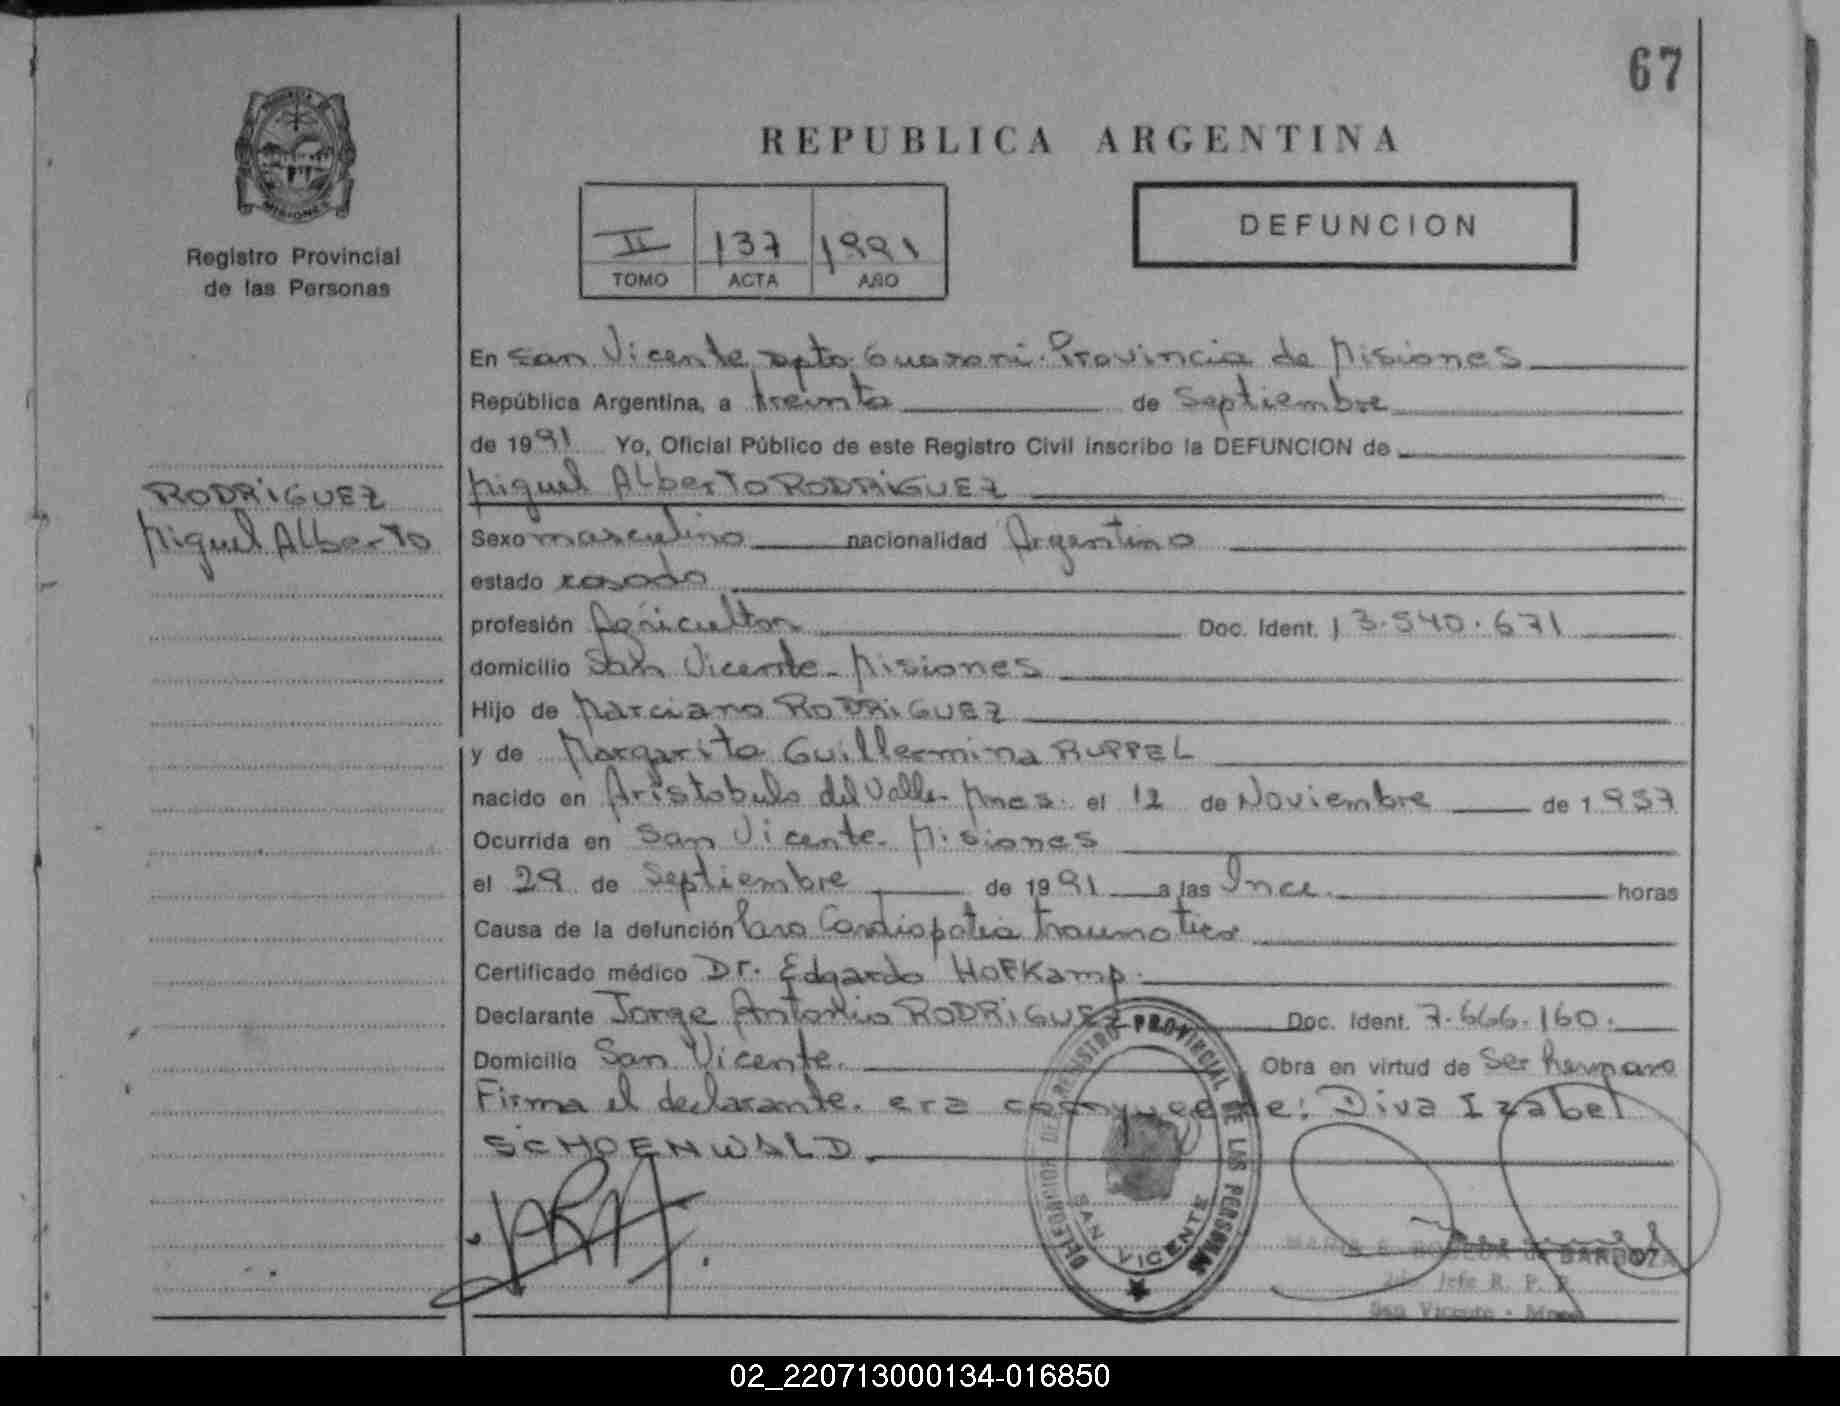 67
PROVINCIA DE
MISIONES
Registro Provincial
de las Personas
REPUBLICA ARGENTINA
II 137 1991
TOMO ACTA AÑO
DEFUNCION
En San Vicente, Dpto. Guarani. Provincia de Misiones
República Argentina, a treinta de Septiembre
de 1991 Yo, Oficial Público de este Registro Civil inscribo la DEFUNCION de
RODRiGUEZ
Miguel Alberto
Miguel Alberto RODRiGUEZ
Sexo masculino nacionalidad Argentino
estado casado
profesión Agricultor Doc. Ident. 13.540.671
domicilio San Vicente - Misiones
Hijo de Marciano RODRiGUEZ
y de Margarita Guillermina RUPPEL
nacido en Aristobulo del Valle - Mnes. el 12 de Noviembre de 1.957
Ocurrida en San Vicente - Misiones
el 29 de Septiembre de 1991 a las horas
Causa de la defunción Paro Cardiopatia traumatica
Certificado médico Dr. Edgardo HOFKamp.
Declarante Jorge Antonio RODRiGUEZ Doc. Ident. 7.666.160.
Domicilio San Vicente. Obra en virtud de Ser hermano
Firma el declarante. era conyuge de: Diva Izabel
SCHOENWALD.
DELEGACION DEL REGISTRO PROVINCIAL DE LAS PERSONAS
SAN VICENTE
MARIA E. de BARBOZA
Jefe R. P. P.
San Vicente - Mnes
02_220713000134-016850